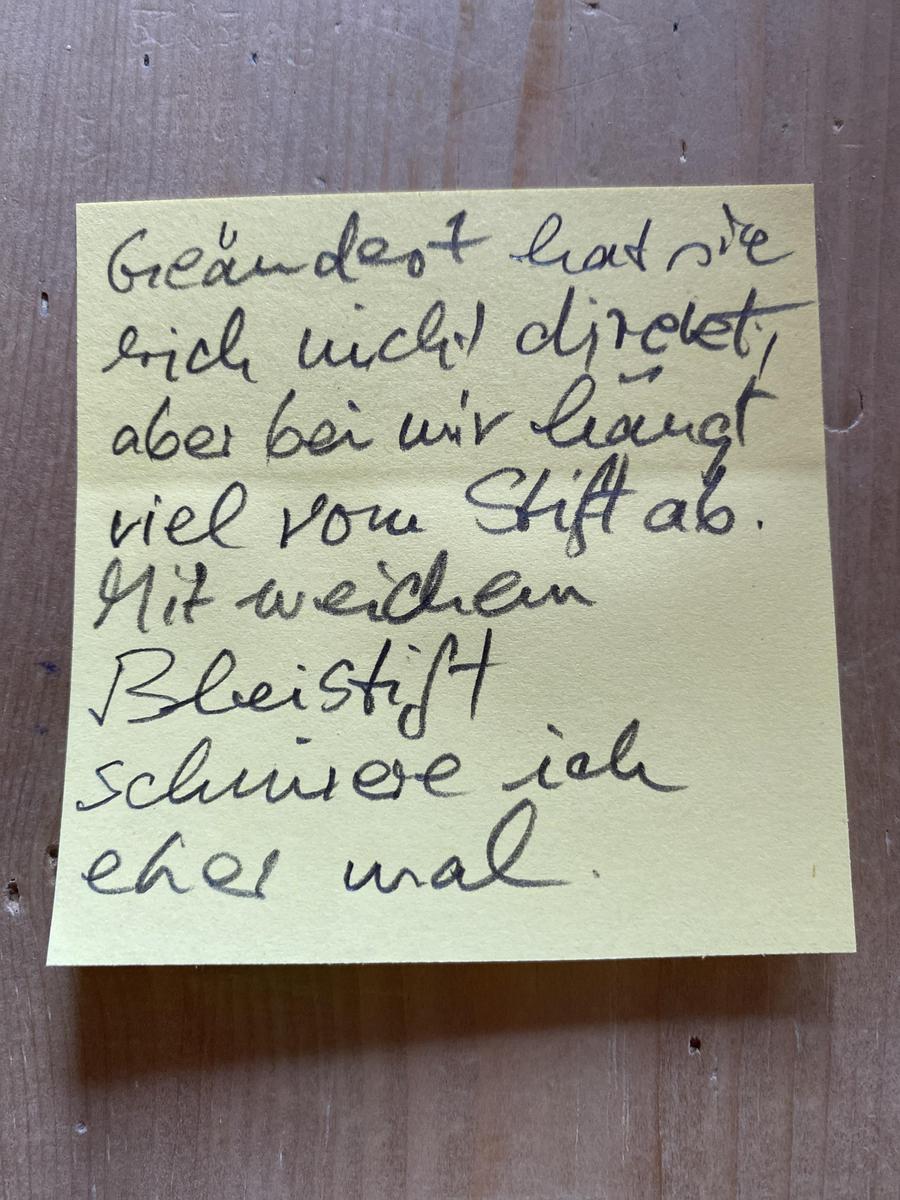 Geändert hat sie
sich nicht direkt,
aber bei mir hängt
viel vom Stift ab.
Mit weichem
Bleistift
schmiere ich
eher mal.